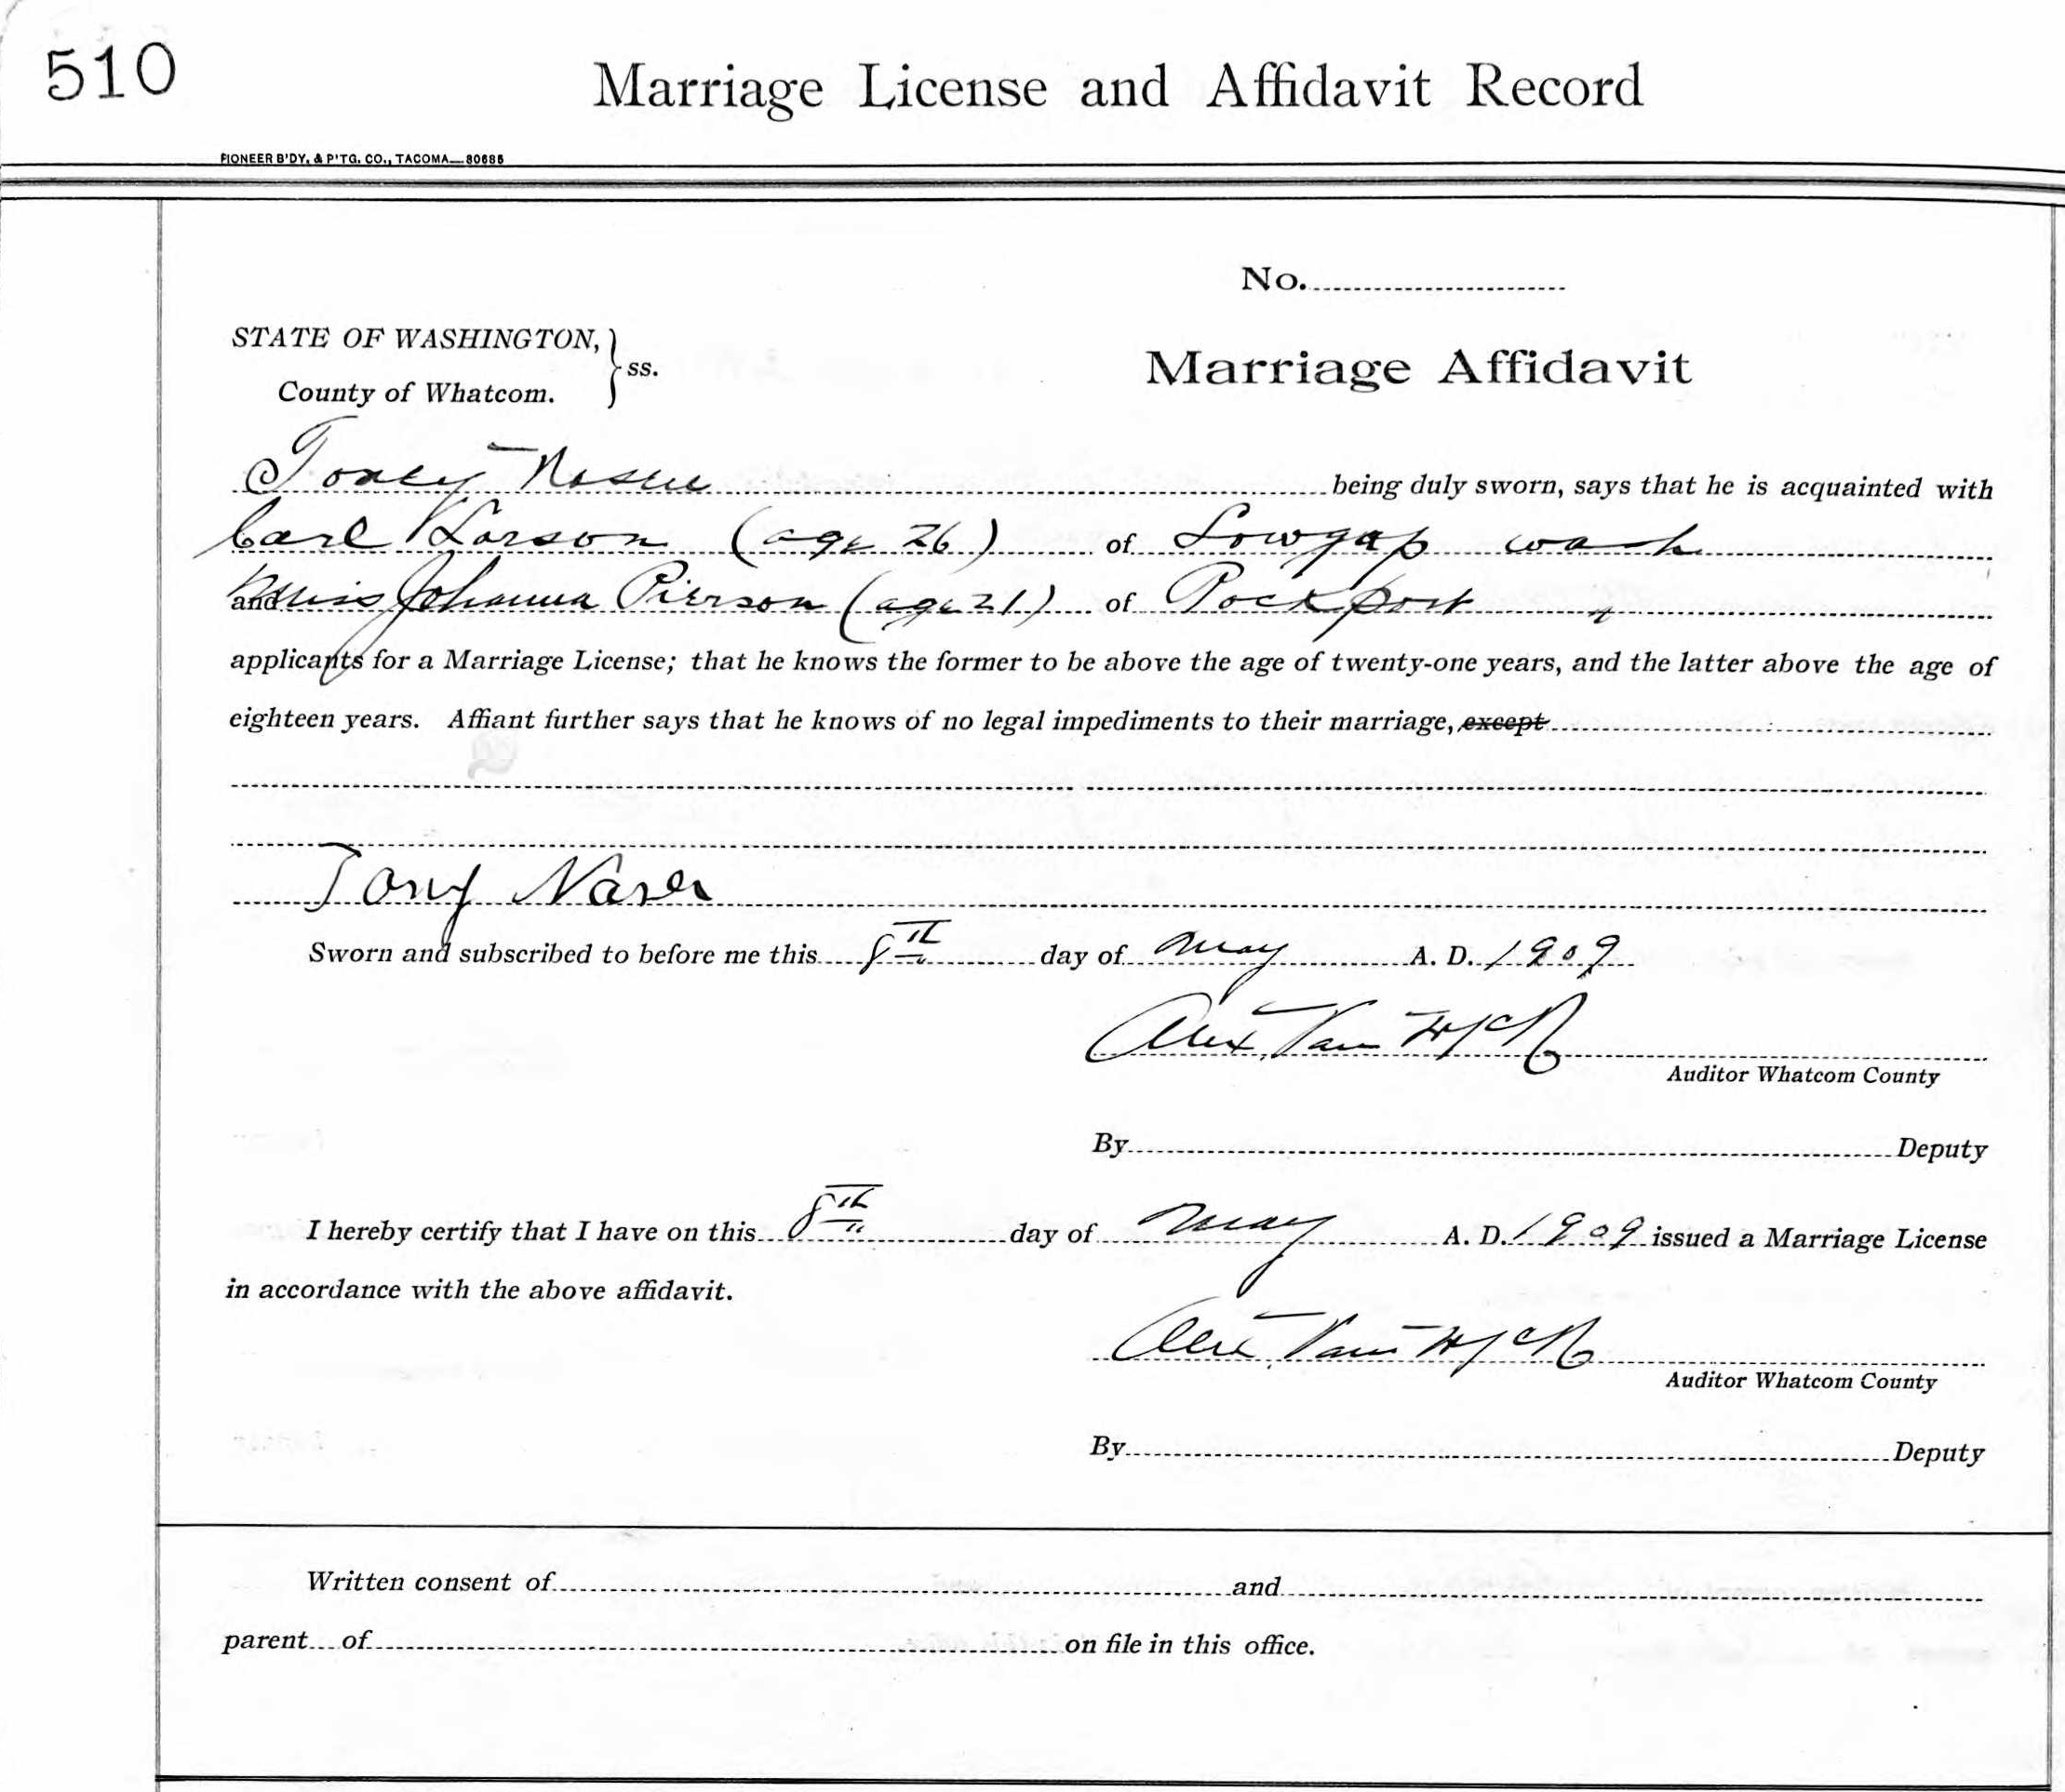 510
Marriage License and Affidavit Record
PIONEER B'DY. & P'TG. CO., TACOMA—80685
No.
STATE OF WASHINGTON,
County of Whatcom.
ss.
Marriage Affidavit
Toney being duly sworn, says that he is acquainted with
Carl Larson (age 26) of Lowgap wash
and Miss Johanna Pierson (age 21) of Rockport "
applicants for a Marriage License; that he knows the former to be above the age of twenty-one years, and the latter above the age of
eighteen years. Affiant further says that he knows of no legal impediments to their marriage, except
Tony
Sworn and subscribed to before me this 8th day of May A. D. 1909
Alex Van Wyck
Auditor Whatcom County
By Deputy
I hereby certify that I have on this 8th day of May A. D. 1909 issued a Marriage License
in accordance with the above affidavit.
Alex Van Wyck
Auditor Whatcom County
By Deputy
Written consent of and
parent of on file in this office.